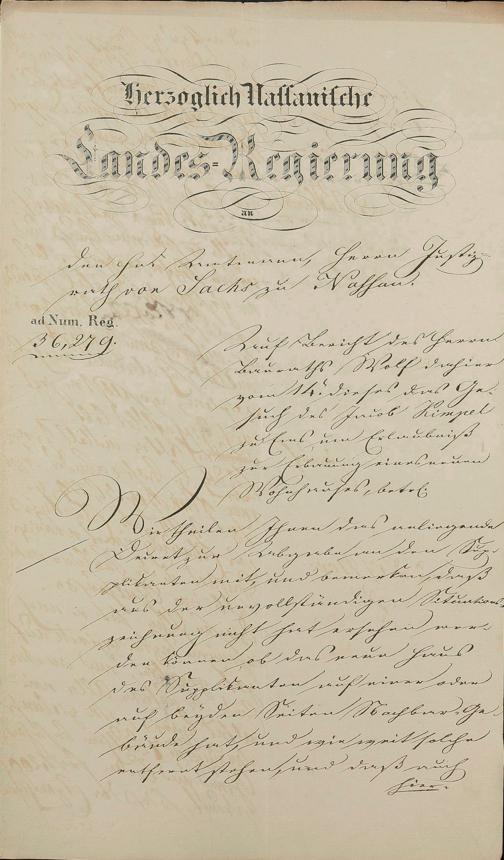 Herzoglich Nassauische
Landes=Regierung
an
den Hof Amtmann, Herrn Justiz=
rath von Sachs zu Nassau.
ad Num. Reg.
36,279.
Auf Bericht des Herrn
Bauraths Wolf dahier
vom 14t dieses das Ge=
such des Jacob Kimpel
zu Ems um Erlaubniß
zur Erbauung eines neuen
Wohnhauses, betr.
Wir theilen Ihnen das anliegende
Decret zur Abgabe an den Sup=
plikanten mit, und bemerken, daß
aus der unvollständigen Situations=
zeichnung nicht hat ersehen wer=
den können ob das neue Haus
des Supplikanten auf einer oder
auf beyden Seiten Nachbar-Ge=
bäude hat, und wie weit solche
entfernt stehen, und daß auch
hier=